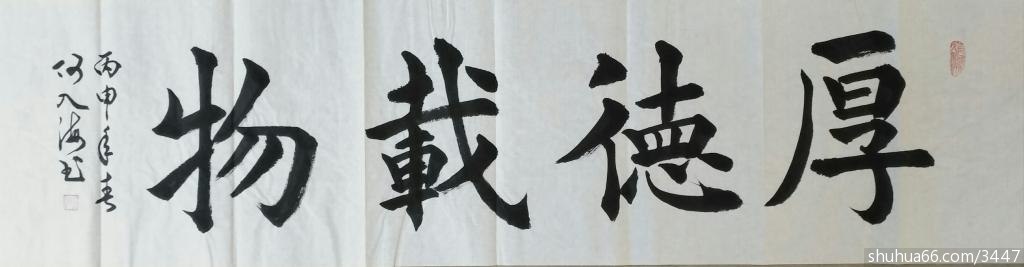 厚德載物
丙申年春
何入海书
shuhua66.com/3447